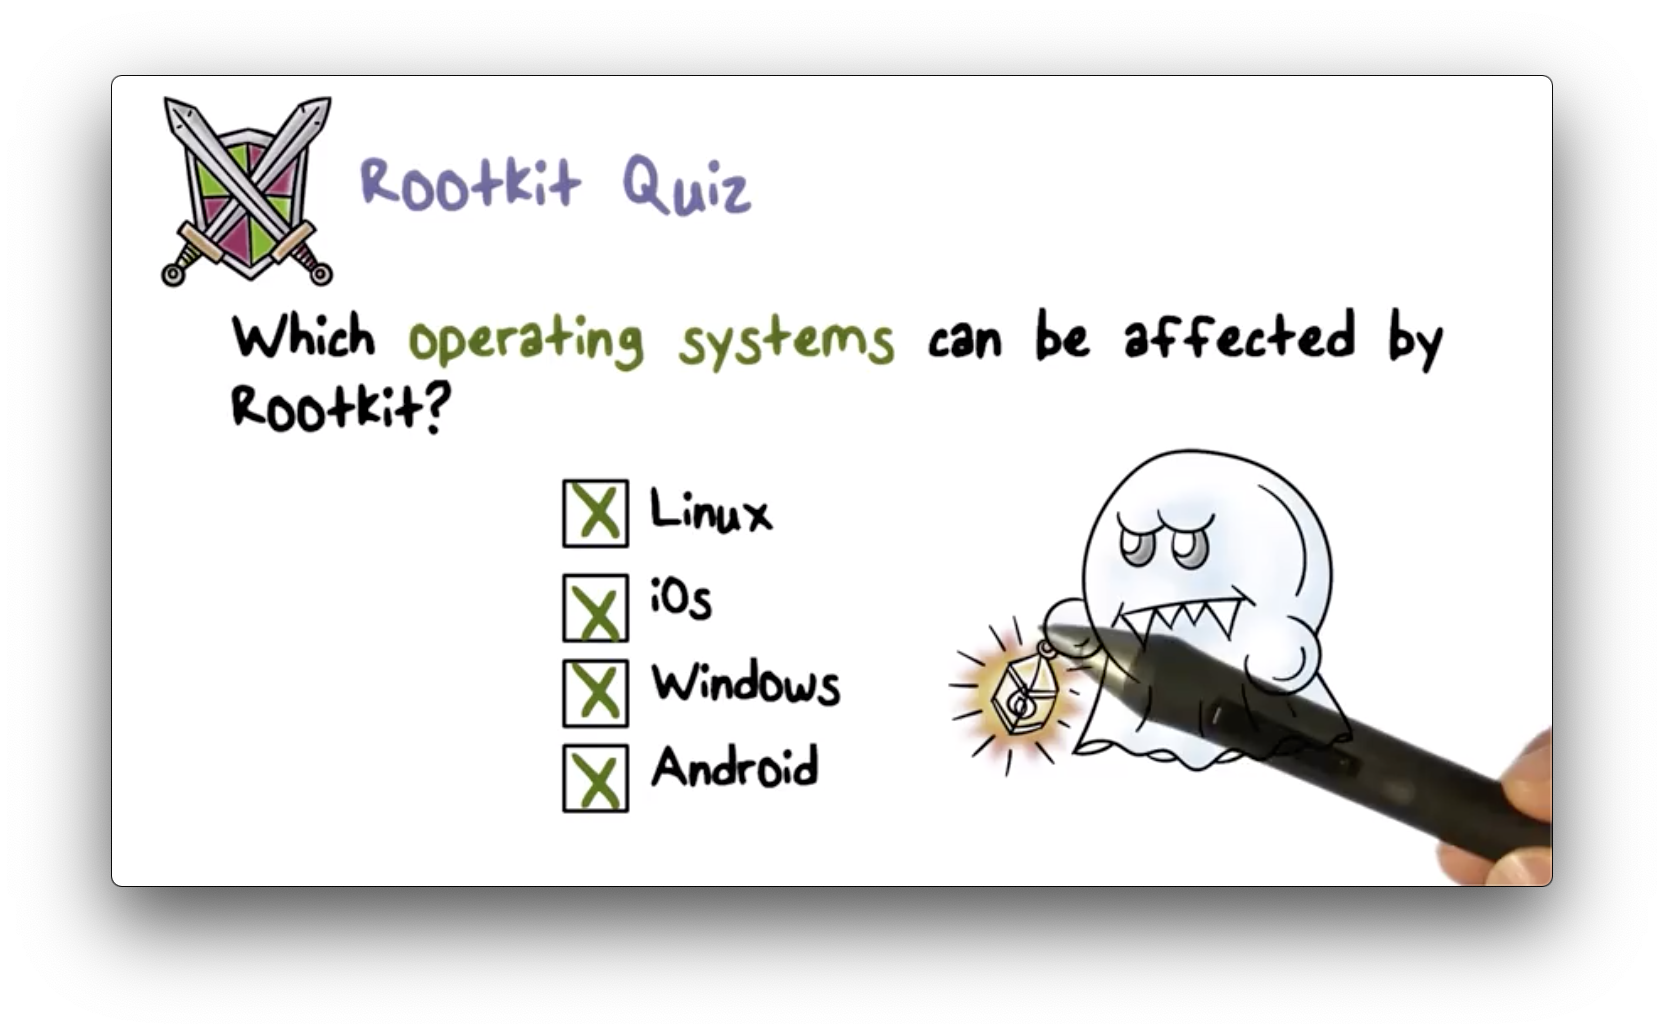 Rootkit Quiz
Which operating systems can be affected by
Rootkit?
X Linux
X iOs
X Windows
X Android